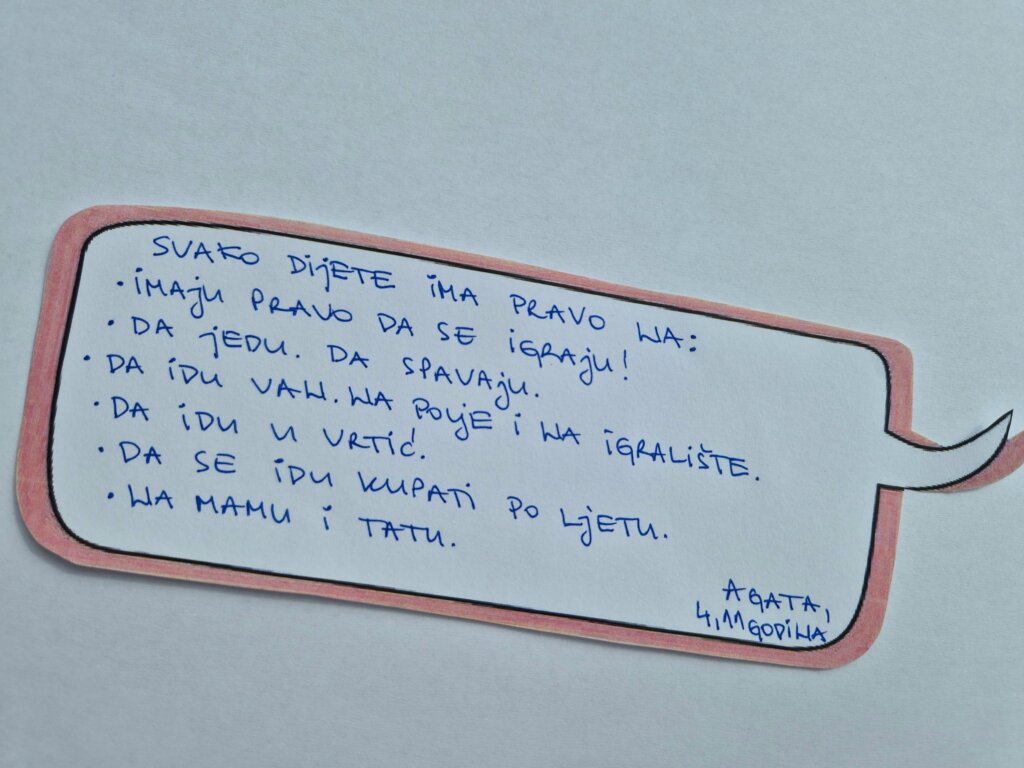 SVAKO DIJETE IMA PRAVO NA:
• IMAJU PRAVO DA SE IGRAJU!
• DA JEDU. DA SPAVAJU.
• DA IDU VAN. NA POLJE I NA IGRALIŠTE.
• DA IDU U VRTIĆ.
• DA SE IDU KUPATI PO LJETU.
• NA MAMU I TATU.
AGATA,
4,11 GODINA